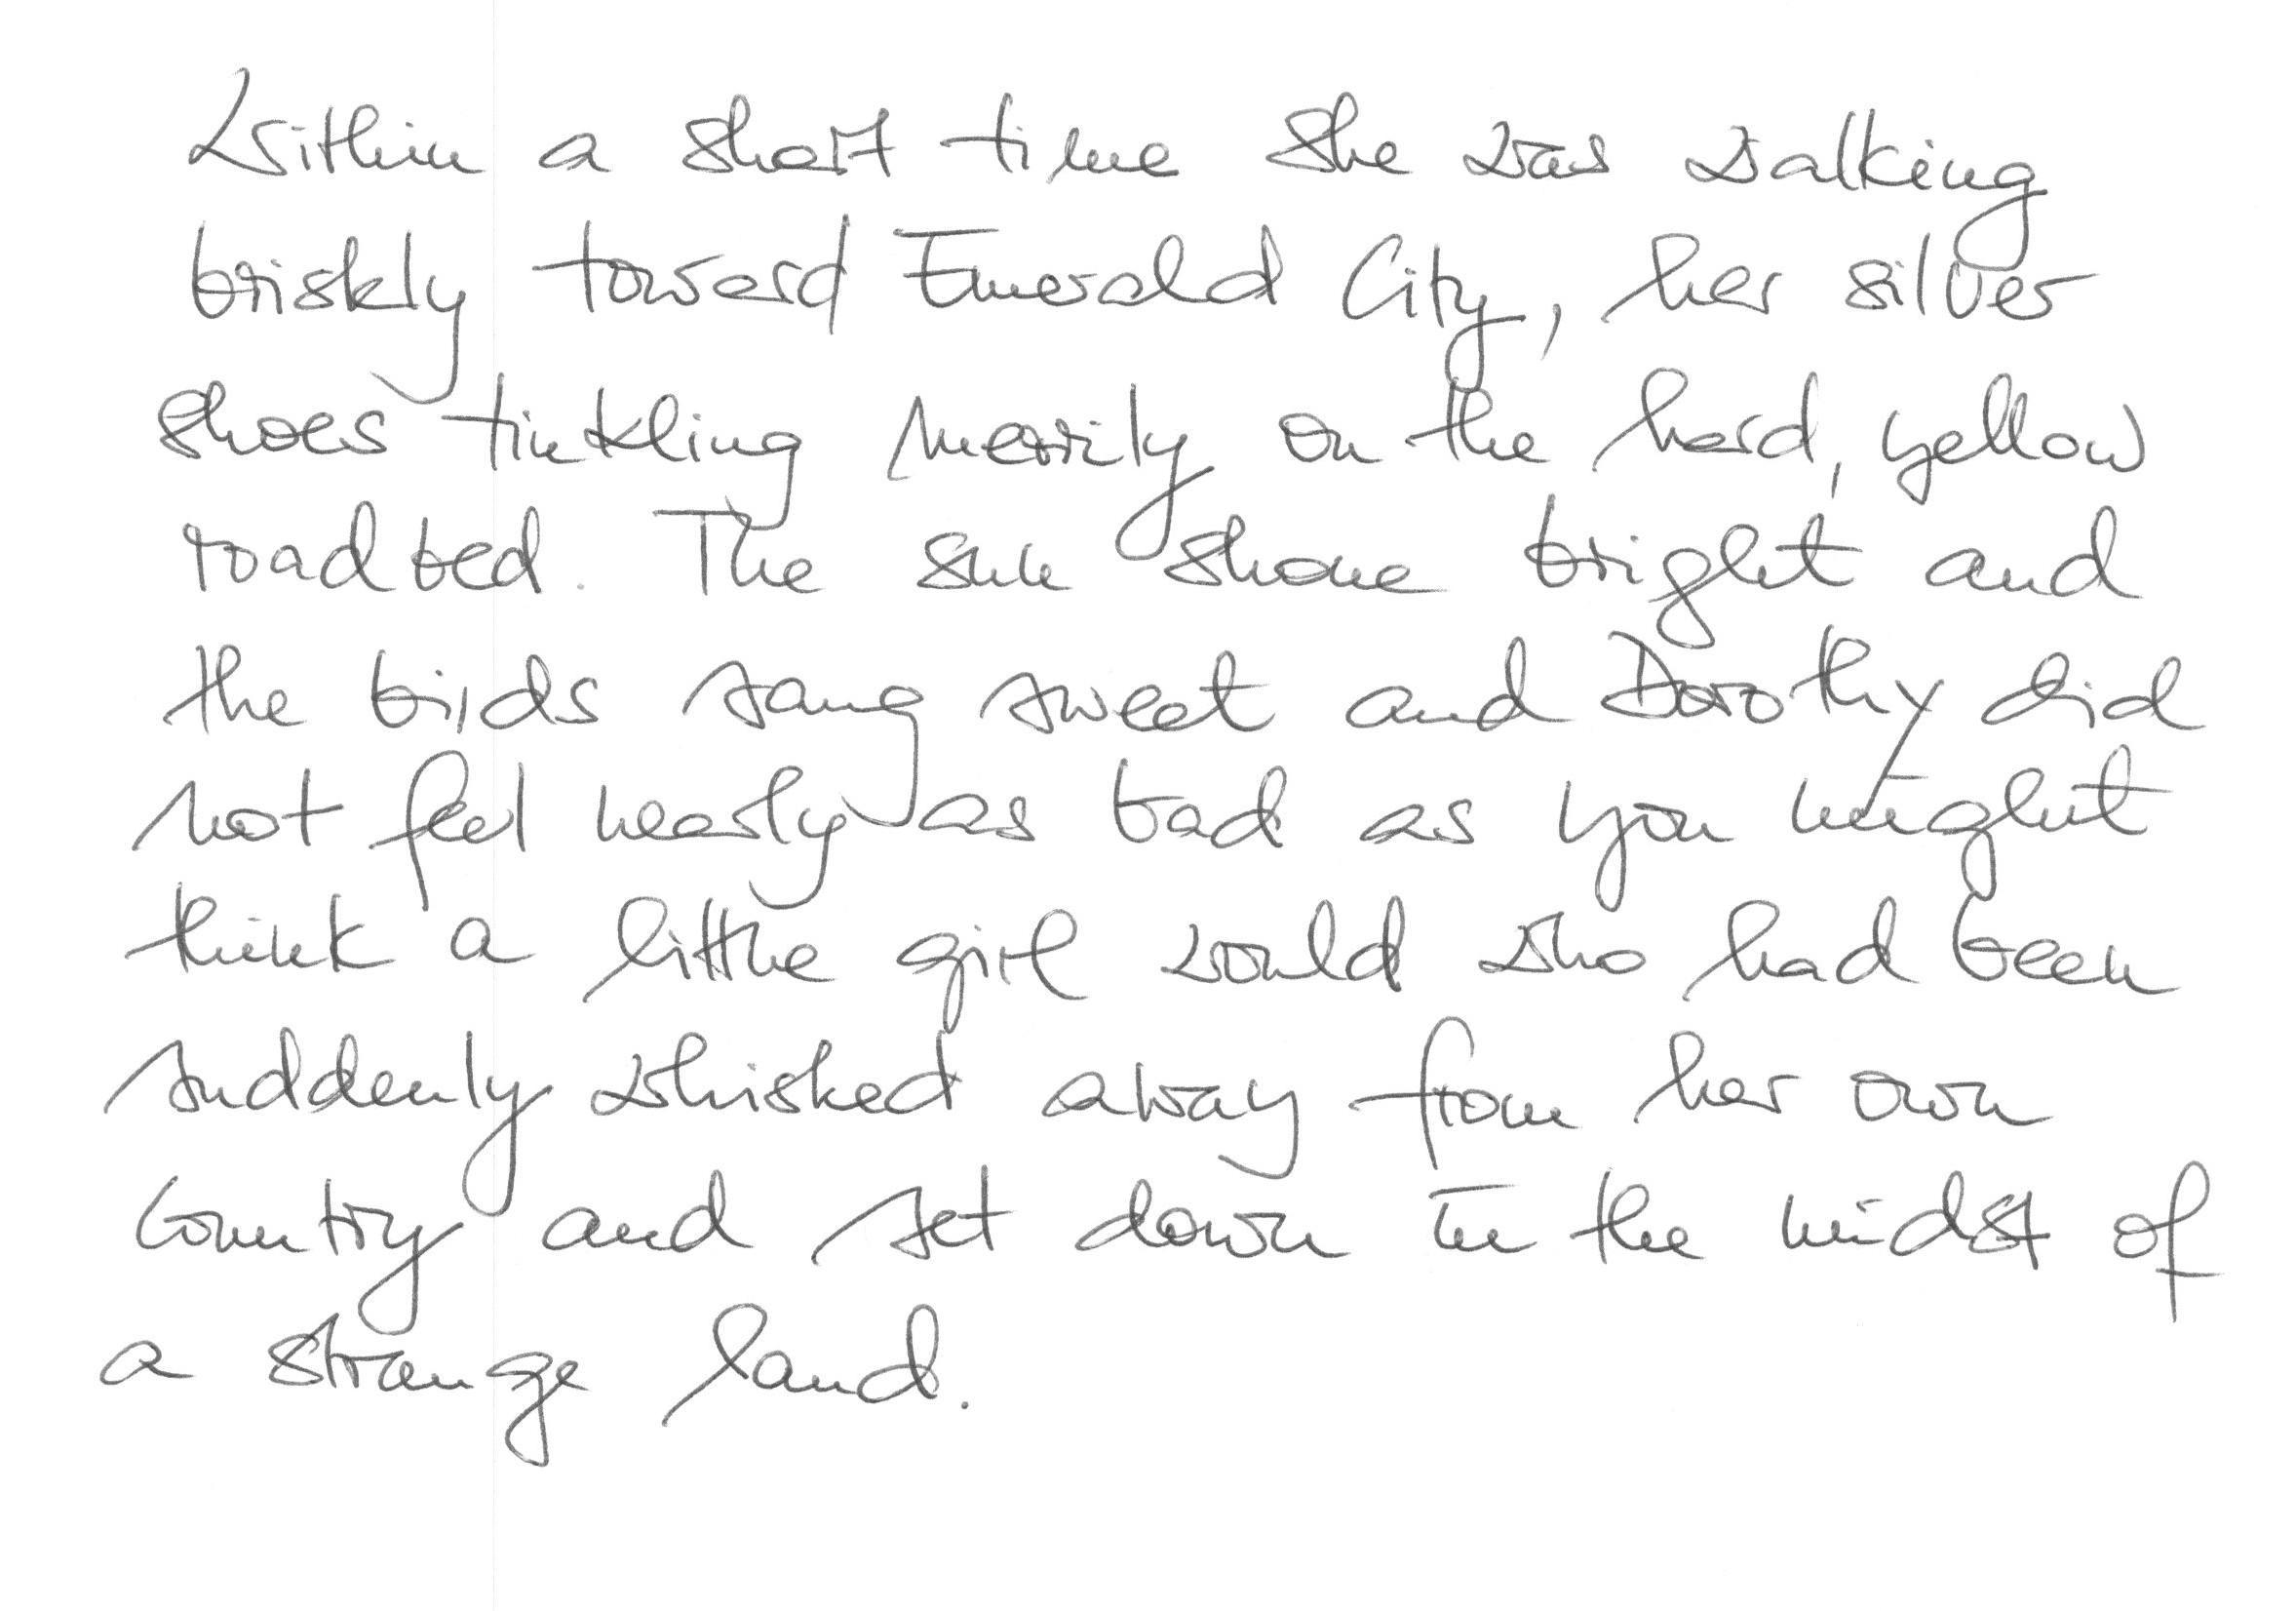 Within a short time she was walking
briskly toward Emerald City, her silver
shoes tinkling merrily on the hard, yellow
roadbed. The sun shone bright and
the birds sang sweet and Dorothy did
not feel nearly as bad as you might
think a little girl would who had been
suddenly whisked away from her own
country and set down in the midst of
a strange land.